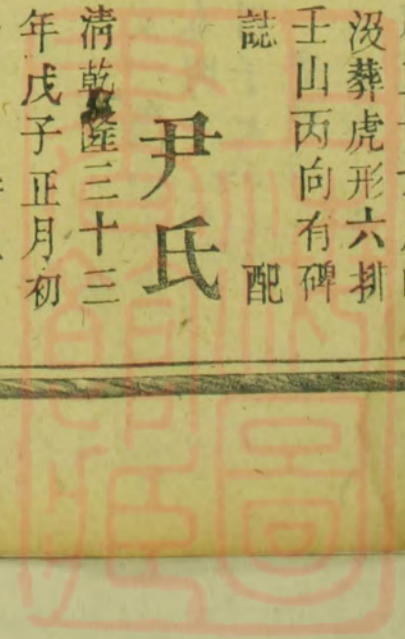 汲葬虎形六排
壬山丙向有碑
誌 配
尹氏
清乾隆三十三
年戊子正月初